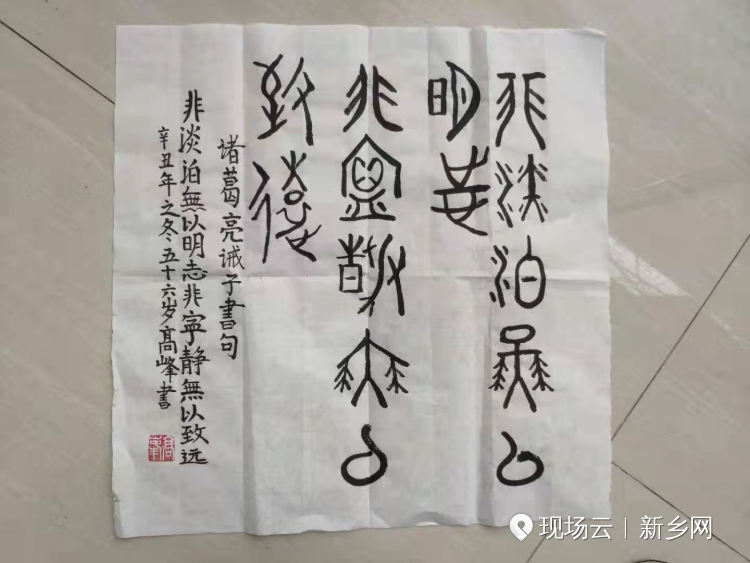 非淡泊無以
明志
非寧静無以
致遠
诸葛亮诫子書句
非淡泊無以明志非寧静無以致远
辛丑年之冬、五十六岁高峰書
高峰
现场云 | 新乡网